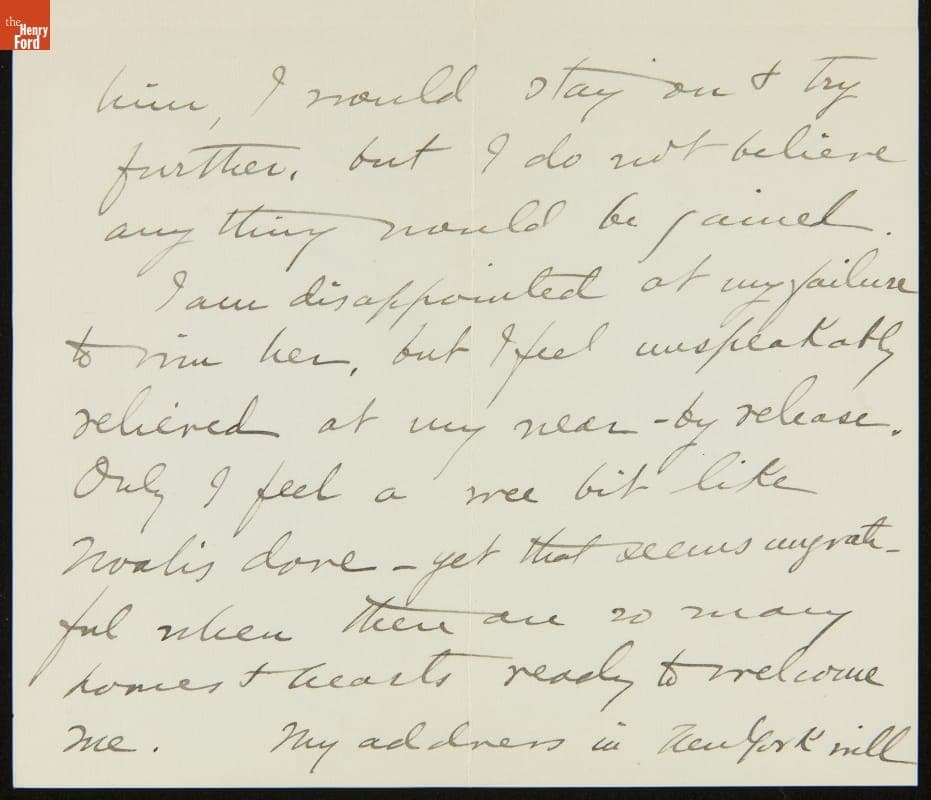 the
Henry
Ford
him, I would stay on & try
further, but I do not believe
any thing would be gained.
I am disappointed at my failure
to win her, but I feel unspeakably
relieved at my near-by release.
Only I feel a wee bit like
Noah's dove - yet that seems ungrate-
ful when there are so many
homes & hearts ready to welcome
me. My address in New York will